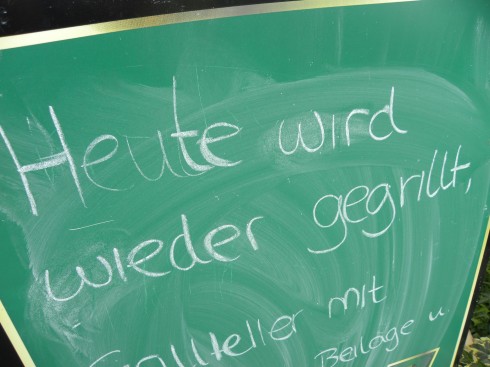 Heute wird
wieder gegrillt,
Grillteller mit
Beilage u.